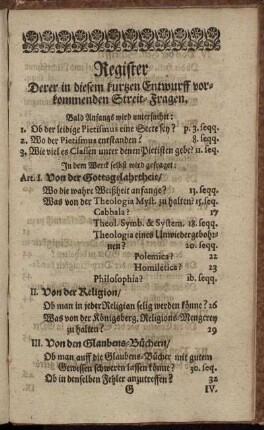 Register
Derer in diesem kurzen Entwurff vor-
kommenden Streit-Fragen.
Bald Anfangs wird untersuchet:
1. Ob der leidige Pietismus eine Secte sey? p. 3. seqq.
2. Wo der Pietismus entstanden? 8. seqq.
3. Wie viel es Classen unter denen Pietisten gebe? 11. seqq.
In dem Werck selbst wird gefraget:
Art. I. Von der Gottsgelahrtheit/
Wo die wahre Weißheit anfange? 13. seqq.
Was von der Theologia Myst. zu halten? 15. seqq.
Cabbala? 17
Theol. Symb. & System. 18. seqq.
Theologia eines Unwiedergebohr
nen? 20. seqq.
Polemica? 22
Homiletica? 23
Philosophia? ib. seqq.
II. Von der Religion/
Ob man in jeder Religian selig werden könne? 26
Was von der Königsberg. Religions-Mengerey
zu halten? 29
III. Von den Glaubens-Büchern/
Ob man auff die Glaubens-Bücher mit gutem
Gewissen schweren lassen könne? 30. seq.
Ob in denselben Fehler anzutreffen? 32
G IV.